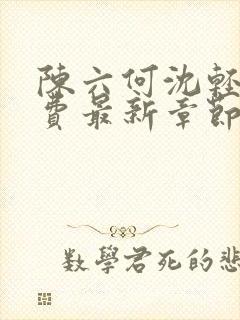 陳六何沈輕
費最新章節
數學君死的悲